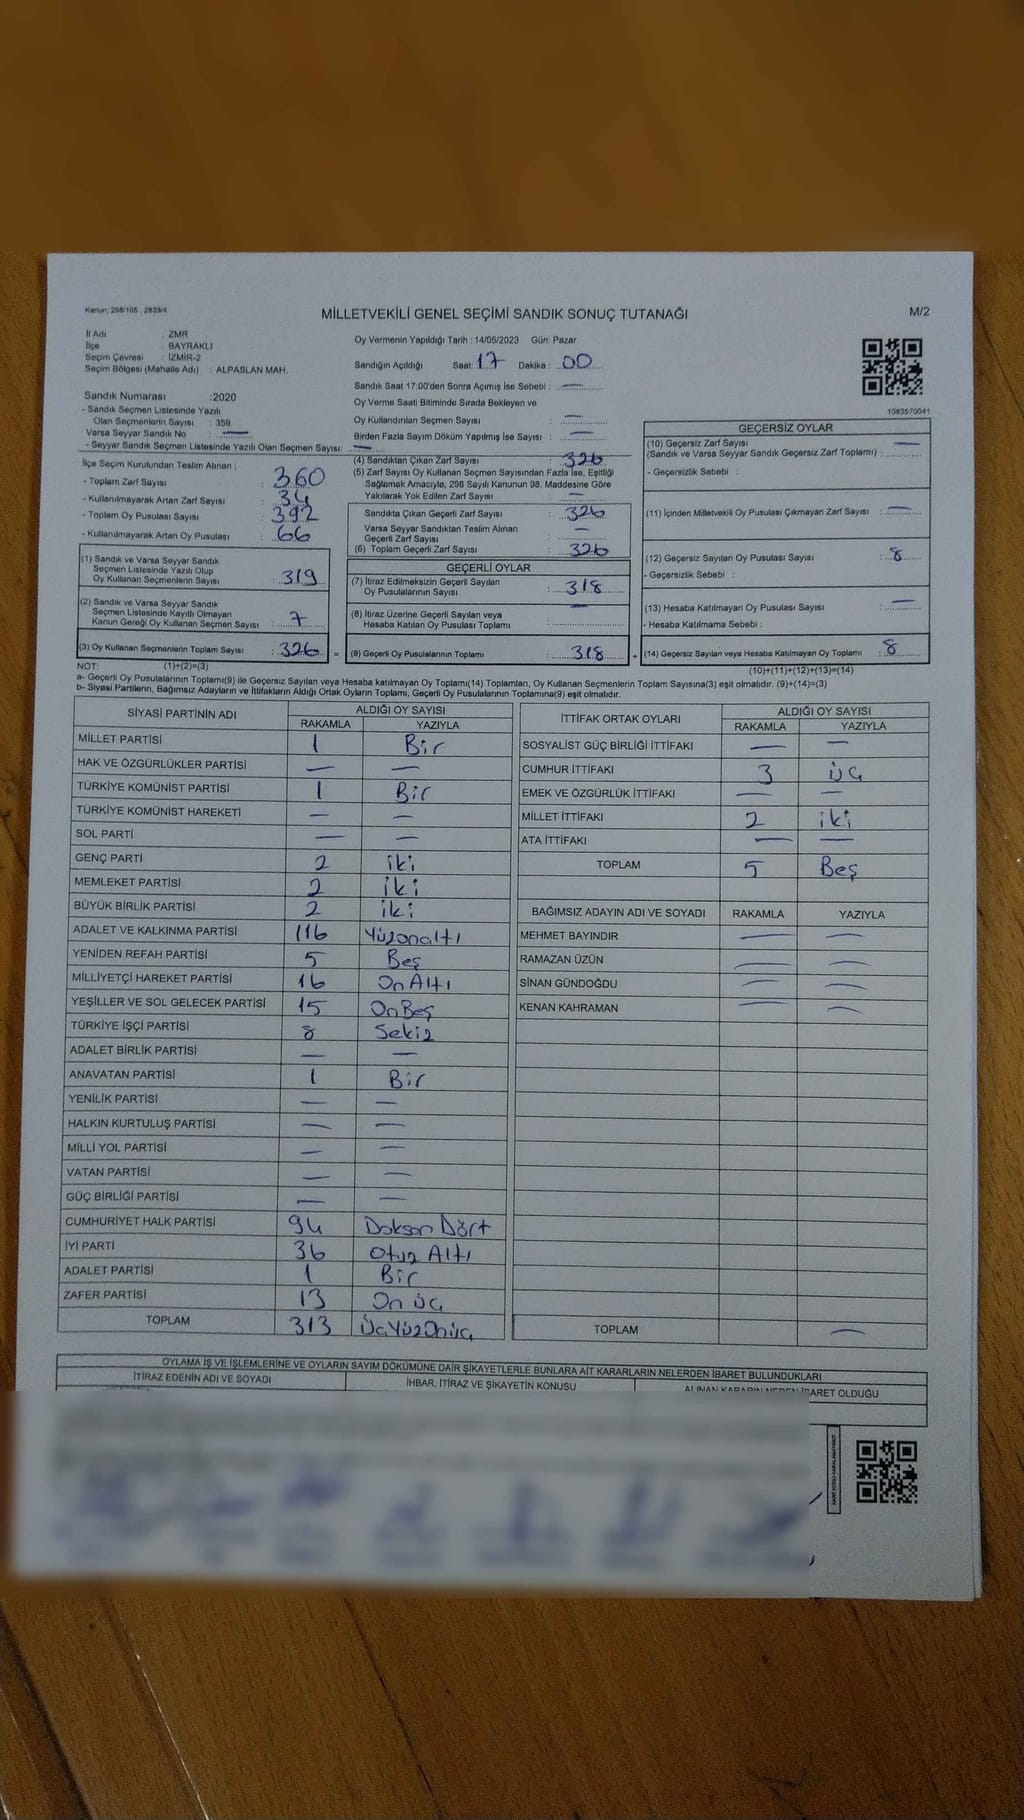 Kanun; 298/105 , 2839/4
MİLLETVEKİLİ GENEL SEÇİMİ SANDIK SONUÇ TUTANAĞI
M/2
İl Adı : ZMR
İlçe : BAYRAKLI
Seçim Çevresi : İZMİR-2
Seçim Bölgesi (Mahalle Adı) : ALPASLAN MAH.
Sandık Numarası :2020
- Sandık Seçmen Listesinde Yazılı
Olan Seçmenlerin Sayısı : 359
Varsa Seyyar Sandık No : —
- Seyyar Sandık Seçmen Listesinde Yazılı Olan Seçmen Sayısı: —
İlçe Seçim Kurulundan Teslim Alınan ;
- Toplam Zarf Sayısı : 360
- Kullanılmayarak Artan Zarf Sayısı : 34
- Toplam Oy Pusulası Sayısı : 392
- Kullanılmayarak Artan Oy Pusulası : 66
(1) Sandık ve Varsa Seyyar Sandık
Seçmen Listesinde Yazılı Olup
Oy Kullanan Seçmenlerin Sayısı : 319
(2) Sandık ve Varsa Seyyar Sandık
Seçmen Listesinde Kayıtlı Olmayan
Kanun Gereği Oy Kullanan Seçmen Sayısı : 7
(3) Oy Kullanan Seçmenlerin Toplam Sayısı : 326
Oy Vermenin Yapıldığı Tarih : 14/05/2023 Gün: Pazar
Sandığın Açıldığı Saat: 17 Dakika : 00
Sandık Saat 17:00'den Sonra Açımış İse Sebebi : —
Oy Verme Saati Bitiminde Sırada Bekleyen ve
Oy Kullandırılan Seçmen Sayısı : —
Birden Fazla Sayım Döküm Yapılmış İse Sayısı : —
(4) Sandıktan Çıkan Zarf Sayısı : 326
(5) Zarf Sayısı Oy Kullanan Seçmen Sayısından Fazla İse, Eşitliği
Sağlamak Amacıyla, 298 Sayılı Kanunun 98. Maddesine Göre
Yakılarak Yok Edilen Zarf Sayısı : —
Sandıkta Çıkan Geçerli Zarf Sayısı : 326
Varsa Seyyar Sandıktan Teslim Alınan
Geçerli Zarf Sayısı : —
(6) Toplam Geçerli Zarf Sayısı : 326
GEÇERLİ OYLAR
(7) İtiraz Edilmeksizin Geçerli Sayılan
Oy Pusulalarının Sayısı : 318
(8) İtiraz Üzerine Geçerli Sayılan veya
Hesaba Katılan Oy Pusulası Toplamı : —
= (9) Geçerli Oy Pusulalarının Toplamı : 318
1083570041
GEÇERSİZ OYLAR
(10) Geçersiz Zarf Sayısı —
(Sandık ve Varsa Seyyar Sandık Geçersiz Zarf Toplamı) :
- Geçersizlik Sebebi :
(11) İçinden Milletvekili Oy Pusulası Çıkmayan Zarf Sayısı : —
(12) Geçersiz Sayılan Oy Pusulası Sayısı : 8
- Geçersizlik Sebebi :
(13) Hesaba Katılmayan Oy Pusulası Sayısı : —
- Hesaba Katılmama Sebebi :
+ (14) Geçersiz Sayılan veya Hesaba Katılmayan Oy Toplamı : 8
NOT: (1)+(2)=(3)
(10)+(11)+(12)+(13)=(14)
a- Geçerli Oy Pusulalarının Toplamı(9) ile Geçersiz Sayılan veya Hesaba katılmayan Oy Toplamı(14) Toplamları, Oy Kullanan Seçmenlerin Toplam Sayısına(3) eşit olmalıdır. (9)+(14)=(3)
b- Siyasi Partilerin, Bağımsız Adayların ve İttifakların Aldığı Ortak Oyların Toplamı, Geçerli Oy Pusulalarının Toplamına(9) eşit olmalıdır.
SİYASİ PARTİNİN ADI ALDIĞI OY SAYISI
RAKAMLA YAZIYLA
MİLLET PARTİSİ 1 Bir
HAK VE ÖZGÜRLÜKLER PARTİSİ — —
TÜRKİYE KOMÜNİST PARTİSİ 1 Bir
TÜRKİYE KOMÜNİST HAREKETİ — —
SOL PARTİ — —
GENÇ PARTİ 2 iki
MEMLEKET PARTİSİ 2 iki
BÜYÜK BİRLİK PARTİSİ 2 iki
ADALET VE KALKINMA PARTİSİ 116 Yüzonaltı
YENİDEN REFAH PARTİSİ 5 Beş
MİLLİYETÇİ HAREKET PARTİSİ 16 On Altı
YEŞİLLER VE SOL GELECEK PARTİSİ 15 OnBeş
TÜRKİYE İŞÇİ PARTİSİ 8 Sekiz
ADALET BİRLİK PARTİSİ — —
ANAVATAN PARTİSİ 1 Bir
YENİLİK PARTİSİ — —
HALKIN KURTULUŞ PARTİSİ — —
MİLLİ YOL PARTİSİ — —
VATAN PARTİSİ — —
GÜÇ BİRLİĞİ PARTİSİ — —
CUMHURİYET HALK PARTİSİ 94 Doksan Dört
İYİ PARTİ 36 Otuz Altı
ADALET PARTİSİ 1 Bir
ZAFER PARTİSİ 13 On üç
TOPLAM 313 ÜçYüzOnüç
İTTİFAK ORTAK OYLARI ALDIĞI OY SAYISI
RAKAMLA YAZIYLA
SOSYALİST GÜÇ BİRLİĞİ İTTİFAKI — —
CUMHUR İTTİFAKI 3 üç
EMEK VE ÖZGÜRLÜK İTTİFAKI — —
MİLLET İTTİFAKI 2 iki
ATA İTTİFAKI — —
TOPLAM 5 Beş
BAĞIMSIZ ADAYIN ADI VE SOYADI RAKAMLA YAZIYLA
MEHMET BAYINDIR — —
RAMAZAN ÜZÜN — —
SİNAN GÜNDOĞDU — —
KENAN KAHRAMAN — —
TOPLAM —
OYLAMA İŞ VE İŞLEMLERİNE VE OYLARIN SAYIM DÖKÜMÜNE DAİR ŞİKAYETLERLE BUNLARA AİT KARARLARIN NELERDEN İBARET BULUNDUKLARI
İTİRAZ EDENİN ADI VE SOYADI İHBAR, İTİRAZ VE ŞİKAYETİN KONUSU ALINAN KARARIN NEDEN İBARET OLDUĞU